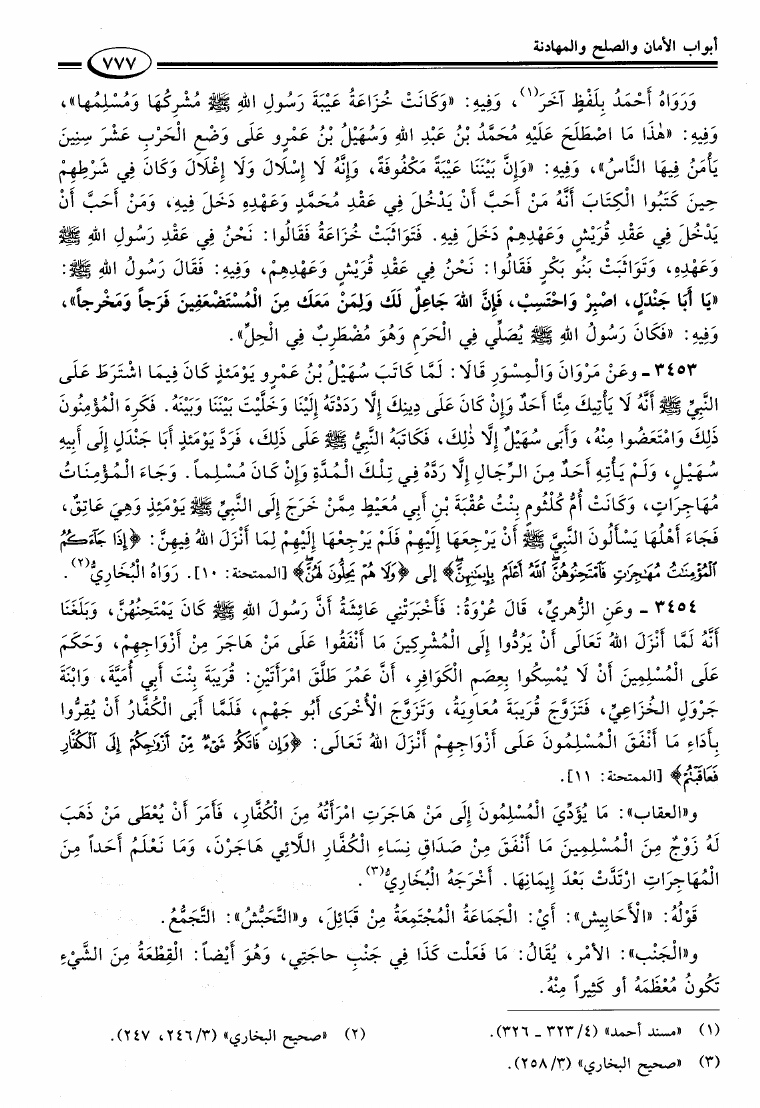 أبواب الأمان والصلح والمهادنة
٧٧٧
وَرَوَاهُ أَحْمَدُ بِلَفْظٍ آخَرَ(١)، وَفِيهِ: «وَكَانَتْ خُزَاعَةُ عَيْبَةَ رَسُولِ اللهِ ﷺ مُشْرِكُهَا وَمُسْلِمُها»،
وَفِيهِ: «هٰذَا مَا اصْطَلَحَ عَلَيْهِ مُحَمَّدُ بْنُ عَبْدِ اللهِ وَسُهَيْلُ بْنُ عَمْرٍو عَلَى وَضْعِ الْحَرْبِ عَشْرَ سِنِينَ
يَأْمَنُ فِيهَا النَّاسُ»، وَفِيهِ: «وَإِنَّ بَيْنَنَا عَيْبَةً مَكْفُوفَةً، وَإِنَّهُ لَا إِسْلَالَ وَلَا إِغْلَالَ وَكَانَ فِي شَرْطِهِمْ
حِينَ كَتَبُوا الْكِتَابَ أَنَّهُ مَنْ أَحَبَّ أَنْ يَدْخُلَ فِي عَقْدِ مُحَمَّدٍ وَعَهْدِهِ دَخَلَ فِيهِ، وَمَنْ أَحَبَّ أَنْ
يَدْخُلَ فِي عَقْدِ قُرَيْشٍ وَعَهْدِهِمْ دَخَلَ فِيهِ. فَتَوَاثَبَتْ خُزَاعَةُ فَقَالُوا: نَحْنُ فِي عَقْدِ رَسُولِ اللهِ ﷺ
وَعَهْدِهِ، وَتَوَاثَبَتْ بَنُو بَكْرٍ فَقَالُوا: نَحْنُ فِي عَقْدِ قُرَيْشٍ وَعَهْدِهِمْ، وَفِيهِ: فَقَالَ رَسُولُ اللهِ ﷺ:
«يَا أَبَا جَنْدَلٍ، اصْبِرْ وَاحْتَسِبْ، فَإِنَّ اللهَ جَاعِلٌ لَكَ وَلِمَنْ مَعَكَ مِنَ الْمُسْتَضْعَفِينَ فَرَجاً وَمَخْرجاً»،
وَفِيهِ: «فَكَانَ رَسُولُ اللهِ ﷺ يُصَلِّي فِي الْحَرَمِ وَهُوَ مُضْطَرِبٌ فِي الْحِلِّ».
٣٤٥٣ - وعَنْ مَرْوَانَ وَالْمِسْوَرِ قَالَا: لَمَّا كَاتَبَ سُهَيْلُ بْنُ عَمْرٍو يَوْمَئذٍ كَانَ فِيمَا اشْتَرَطَ عَلَى
النَّبِيِّ ﷺ أَنَّهُ لَا يَأْتِيكَ مِنَّا أَحَدٌ وَإِنْ كَانَ عَلَى دِينِكَ إِلَّا رَدَدْتَهُ إِلَيْنَا وَخَلَّيْتَ بَيْنَنَا وَبَيْنَهُ. فَكَرِهَ الْمُؤْمِنُونَ
ذَلِكَ وَامْتَعَضُوا مِنْهُ، وَأَبَى سُهَيْلٌ إِلَّا ذٰلِكَ، فَكَاتَبَهُ النَّبِيُّ ﷺ عَلَى ذَلِكَ، فَرَدَّ يَوْمَئِذٍ أَبَا جَنْدَلٍ إِلَى أَبِيهِ
سُهَيْلٍ، وَلَمْ يَأْتِهِ أَحَدٌ مِنَ الرِّجَالِ إِلَّا رَدَّهُ فِي تِلْكَ الْمُدَّةِ وَإِنْ كَانَ مُسْلِماً. وَجَاءَ الْمُؤْمِنَاتُ
مُهَاجِرَاتٍ، وَكَانَتْ أُمُّ كُلْثُومٍ بِنْتُ عُقْبَةَ بْنِ أَبِي مُعَيْطٍ مِمَّنْ خَرَجَ إِلَى النَّبِيِّ ﷺ يَوْمَئِذٍ وَهِيَ عَاتِقٌ،
فَجَاءَ أَهْلُهَا يَسْأَلُونَ النَّبِيَّ ﷺ أَنْ يَرْجِعَهَا إِلَيْهِمْ فَلَمْ يَرْجِعْهَا إِلَيْهِمْ لِمَا أَنْزَلَ اللهُ فِيهِنَّ: ﴿إِذَا جَآءَكُمُ
الْمُؤْمِنَٰتُ مُهَٰجِرَٰتٍ فَامْتَحِنُوهُنَّ اللَّهُ أَعْلَمُ بِإِيمَٰنِهِنَّ﴾ إلى ﴿وَلَا هُمْ يَحِلُّونَ لَهُنَّ﴾ [الممتحنة: ١٠]. رَوَاهُ الْبُخَارِيُّ(٢).
٣٤٥٤ - وعَنِ الزُّهريِّ، قَالَ عُرْوَةُ: فَأَخْبَرَتْنِي عَائِشَةُ أَنَّ رَسُولَ اللهِ ﷺ كَانَ يَمْتَحِنُهُنَّ، وَبَلَغَنَا
أَنَّهُ لَمَّا أَنْزَلَ اللهُ تَعَالَى أَنْ يَرُدُّوا إِلَى الْمُشْرِكِينَ مَا أَنْفَقُوا عَلَى مَنْ هَاجَرَ مِنْ أَزْوَاجِهِمْ، وَحَكَمَ
عَلَى الْمُسْلِمِينَ أَنْ لَا يُمْسِكُوا بِعِصَمِ الْكَوَافِرِ، أَنَّ عُمَرَ طَلَّقَ امْرَأَتَيْنِ: قُرَيبَةَ بِنْتَ أَبِي أُمَيَّةَ، وَابْنَةَ
جَرْوَلٍ الْخُزَاعِيِّ، فَتَزَوَّجَ قُرَيبَةَ مُعَاوِيَةُ، وَتَزَوَّجَ الْأُخْرَى أَبُو جَهْمٍ، فَلَمَّا أَبَى الْكُفَّارُ أَنْ يُقِرُّوا
بِأَدَاءِ مَا أَنْفَقَ الْمُسْلِمُونَ عَلَى أَزْوَاجِهِمْ أَنْزَلَ اللهُ تَعَالَى: ﴿وَإِن فَاتَكُمْ شَىْءٌ مِّنْ أَزْوَٰجِكُمْ إِلَى الْكُفَّارِ
فَعَاقَبْتُمْ﴾ [الممتحنة: ١١].
و«العقاب»: مَا يُؤَدِّيَ الْمُسْلِمُونَ إِلَى مَنْ هَاجَرَتِ امْرَأَتُهُ مِنَ الْكُفَّارِ، فَأَمَرَ أَنْ يُعْطَى مَنْ ذَهَبَ
لَهُ زَوْجٌ مِنَ الْمُسْلِمِينَ مَا أَنْفَقَ مِنْ صَدَاقِ نِسَاءِ الْكُفَّارِ اللَّائِي هَاجَرْنَ، وَمَا نَعْلَمُ أَحَداً مِنَ
الْمُهَاجِرَاتِ ارْتَدَّتْ بَعْدَ إِيمَانِهَا. أَخْرَجَهُ الْبُخَارِيُّ(٣).
قَوْلُهُ: «الْأَحَابِيش»: أَيْ: الْجَمَاعَةُ الْمُجْتَمِعَةُ مِنْ قَبَائِلَ، و«التَّحَبُّشُ»: التَّجَمُّعُ.
و«الْجَنْب»: الأمْر، يُقَالُ: مَا فَعَلْت كَذَا فِي جَنْبِ حاجَتِي، وَهُوَ أَيْضاً: الْقِطْعَةُ مِنَ الشَّيْءِ
تَكُونُ مُعْظَمَهُ أو كَثِيراً مِنْهُ.
(١) «مسند أحمد» (٤/ ٣٢٣ - ٣٢٦).
(٢) «صحيح البخاري» (٣/ ٢٤٦، ٢٤٧).
(٣) «صحيح البخاري» (٣/ ٢٥٨).